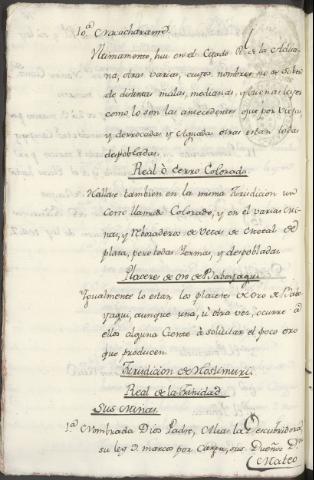 10.ª Macacharamẽ.
Ultimamente, hai en el Citado Rl. de la Aduana, otras varias, cuyos nombres no se saben
de distintas malas, medianas, y buenas leyes
como lo son las antecedentes que por viejas
y derrocadas y Aguadas otras estan todas
despobladas.
Real d Cerro Colorado
Hallase tambien en la misma Jurisdicion un
Cerro llamado Colorado, y en el varias Mi-
nas, y Rebosaderos de Vetas de metal de
plata, pero todas Yermas, y despobladas
Placeres de oro de Babojaqui
Igualmente lo estan los placeres de Oro de Babo-
yaqui, aunque una, ú otra vez, ocurre á
ellos alguna Gente à solicitar el poco oro
que producen.
Jurisdicion de Hostimuri
Real de la Trinidad
Sus Minas
1.ª Nombrada Dios Padre, Alias la Descubridora
su ley 3. marcos por Carga, sus Dueños Dn.
Mateo